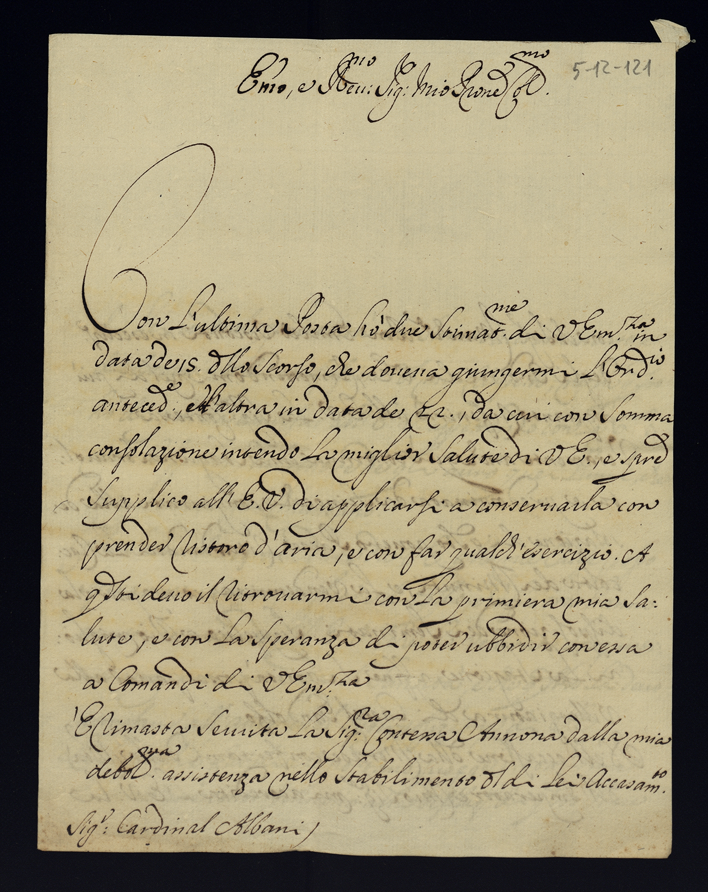 5-12-121
Em̃o, e Reu:mo Sig: Mio Prone Colmo.
Con L'ultima Posta hò due Stimat.me di V Em.za in
data de 15. dllo Scorso, che doueua giungermi L'Ord.io
anteced.e, e l'altra in data de 22., da cui con Somma
consolazione intendo La miglior Salute di V E., e
Supplico all' E. V. di applicarsi a conseruarla con
prender ristoro d'aria, e con far qualch'esercizio. A
qsti deuo il ritrouarmi con La primiera mia Sa:
lute, e con La Speranza di poter ubbidir con essa
a Comandi di V Em.za
E rimasta Seruita La Sig.ra Contessa Annona dalla mia
debol.ma assistenza nello Stabilimento dl di Lei Accasam.to
Sig.r Cardinal Albani